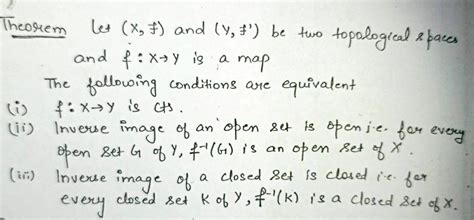 Theorem Let (X, Ƒ) and (Y, Ƒ') be two topological spaces
and f : X→Y is a map
The following conditions are equivalent
(i) f : X→Y is cts.
(ii) Inverse image of an open set is open i.e. for every
open set G of Y, f⁻¹(G) is an open set of X.
(iii) Inverse image of a closed set is closed i.e. for
every closed set K of Y, f⁻¹(K) is a closed set of X.